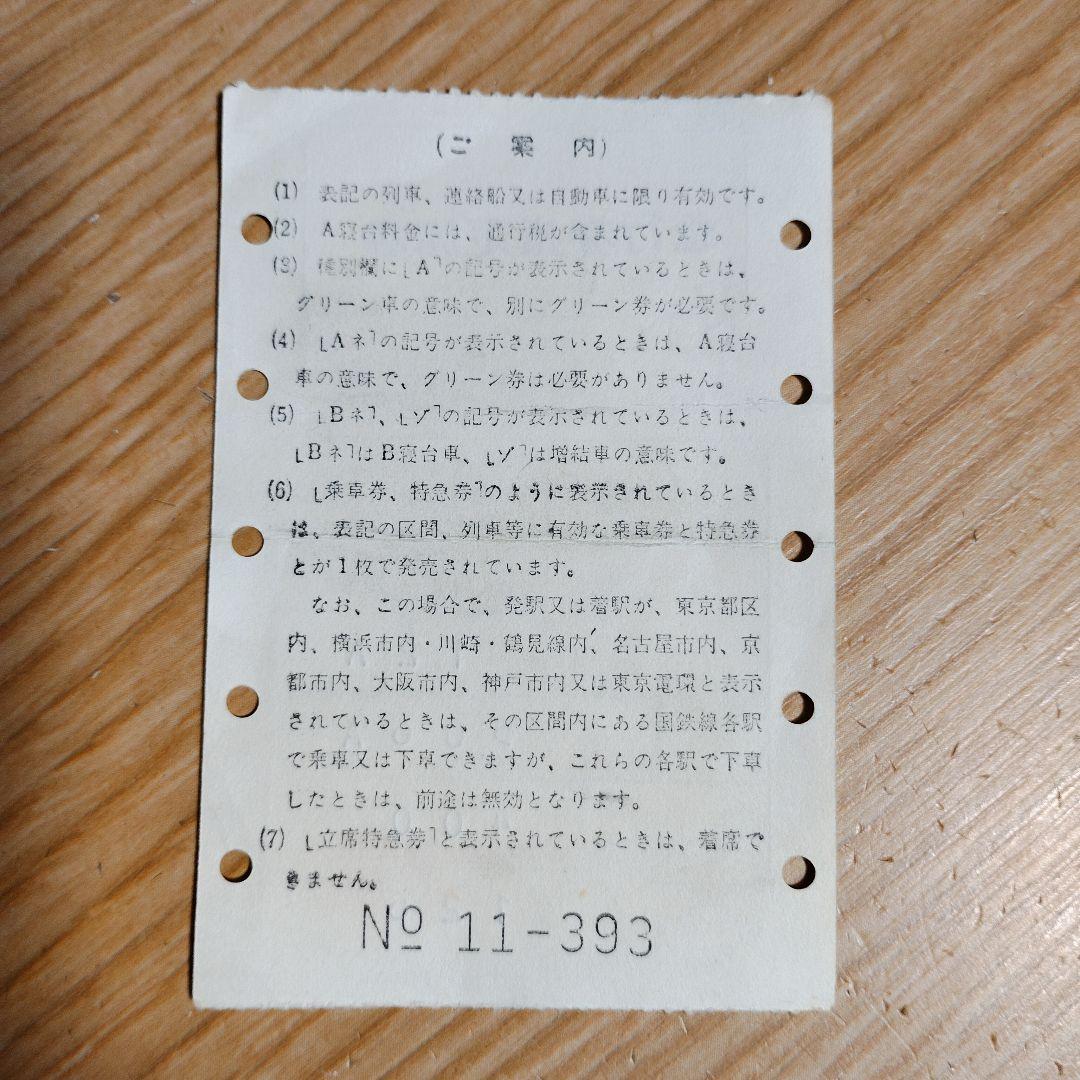 (ご案内)
(1) 表記の列車、連絡船又は自動車に限り有効です。
(2) A寝台料金には、通行税が含まれています。
(3) 種別欄に「A」の記号が表示されているときは、
グリーン車の意味で、別にグリーン券が必要です。
(4) 「Aネ」の記号が表示されているときは、A寝台
車の意味で、グリーン券は必要がありません。
(5) 「Bネ」、「ゾ」の記号が表示されているときは、
「Bネ」はB寝台車、「ゾ」は増結車の意味です。
(6) 「乗車券、特急券」のように表示されているとき
は、表記の区間、列車等に有効な乗車券と特急券
とが1枚で発売されています。
なお、この場合で、発駅又は着駅が、東京都区
内、横浜市内・川崎・鶴見線内、名古屋市内、京
都市内、大阪市内、神戸市内又は東京電環と表示
されているときは、その区間内にある国鉄線各駅
で乗車又は下車できますが、これらの各駅で下車
したときは、前途は無効となります。
(7) 「立席特急券」と表示されているときは、着席で
きません。
№ 11-393